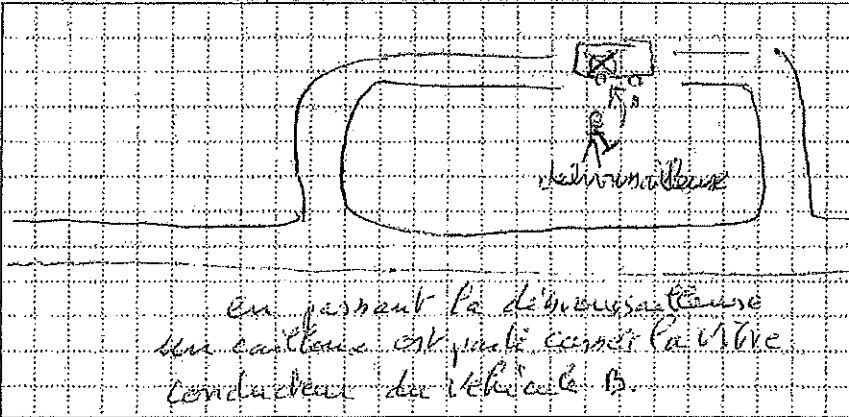 B
débroussailleuse
en passant la débroussailleuse
un caillou est parti casser la vitre
conducteur du véhicule B.